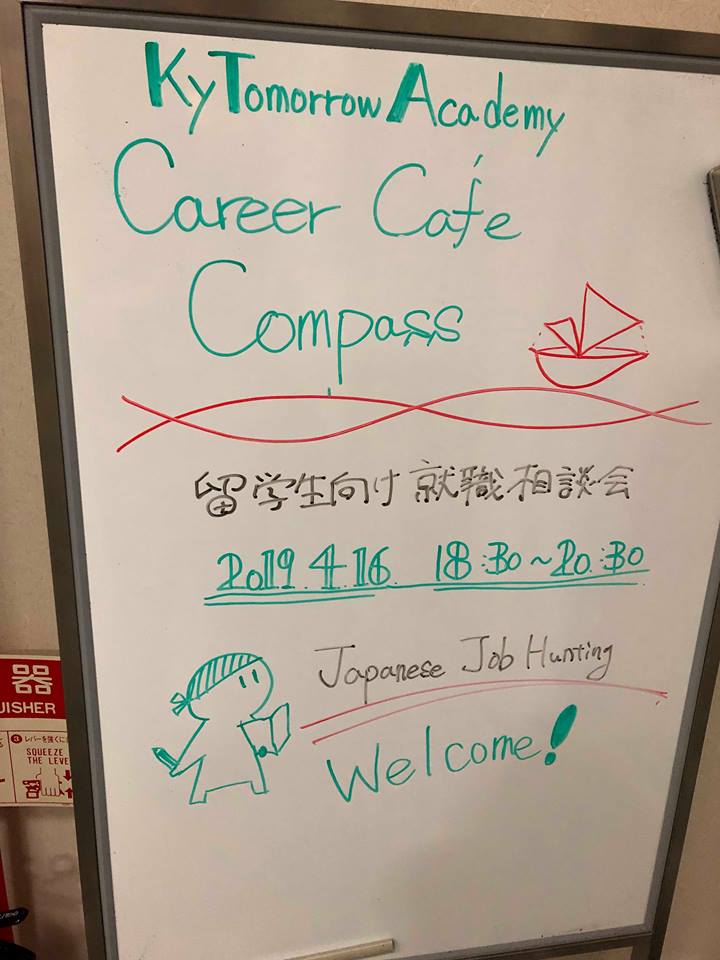 KyTomorrow Academy
Career Café
Compass
留学生向け就職相談会
2019.4.16. 18:30~20:30
Japanese Job Hunting
Welcome!
器
UISHER
レバーを強くに
SQUEEZE
THE LEVE